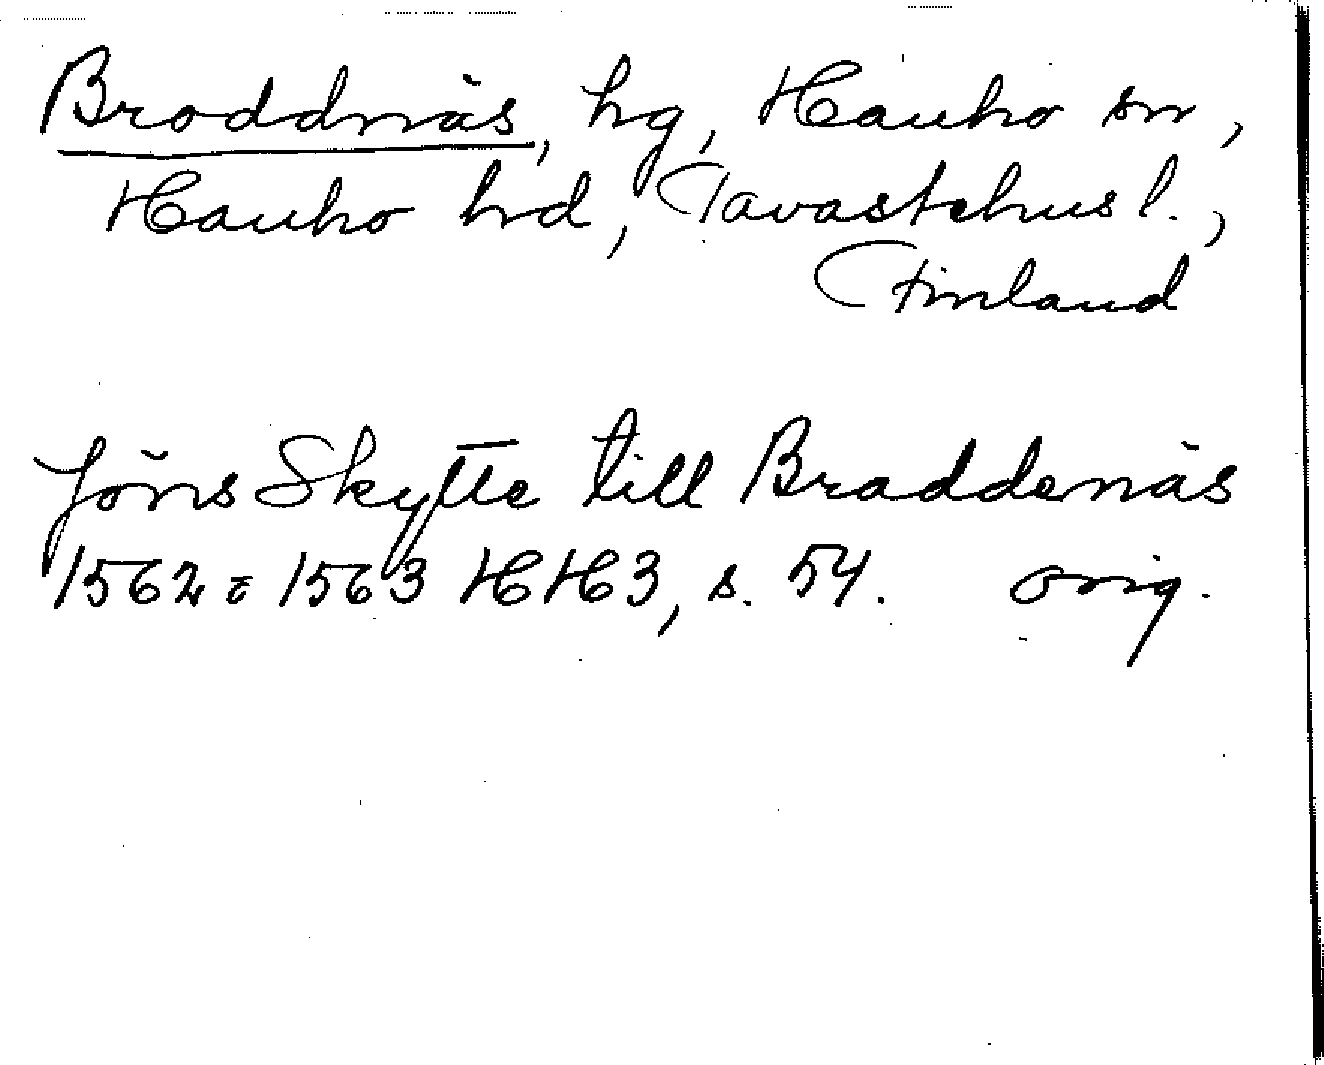 Broddnäs, hg, Hauho sn,
Hauho hd, Tavastehus l.,
Finland
Jöns Skytte till Braddenäs
1562 = 1563 HH3, s. 54. orig.